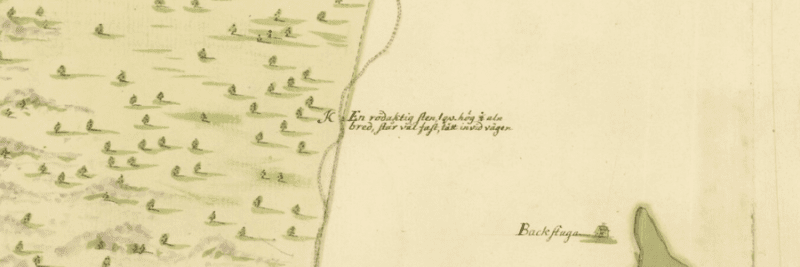 K En rödaktig sten, 1 qw. hög ½ aln
bred, står väl fast, tätt invid vägen
Backstuga